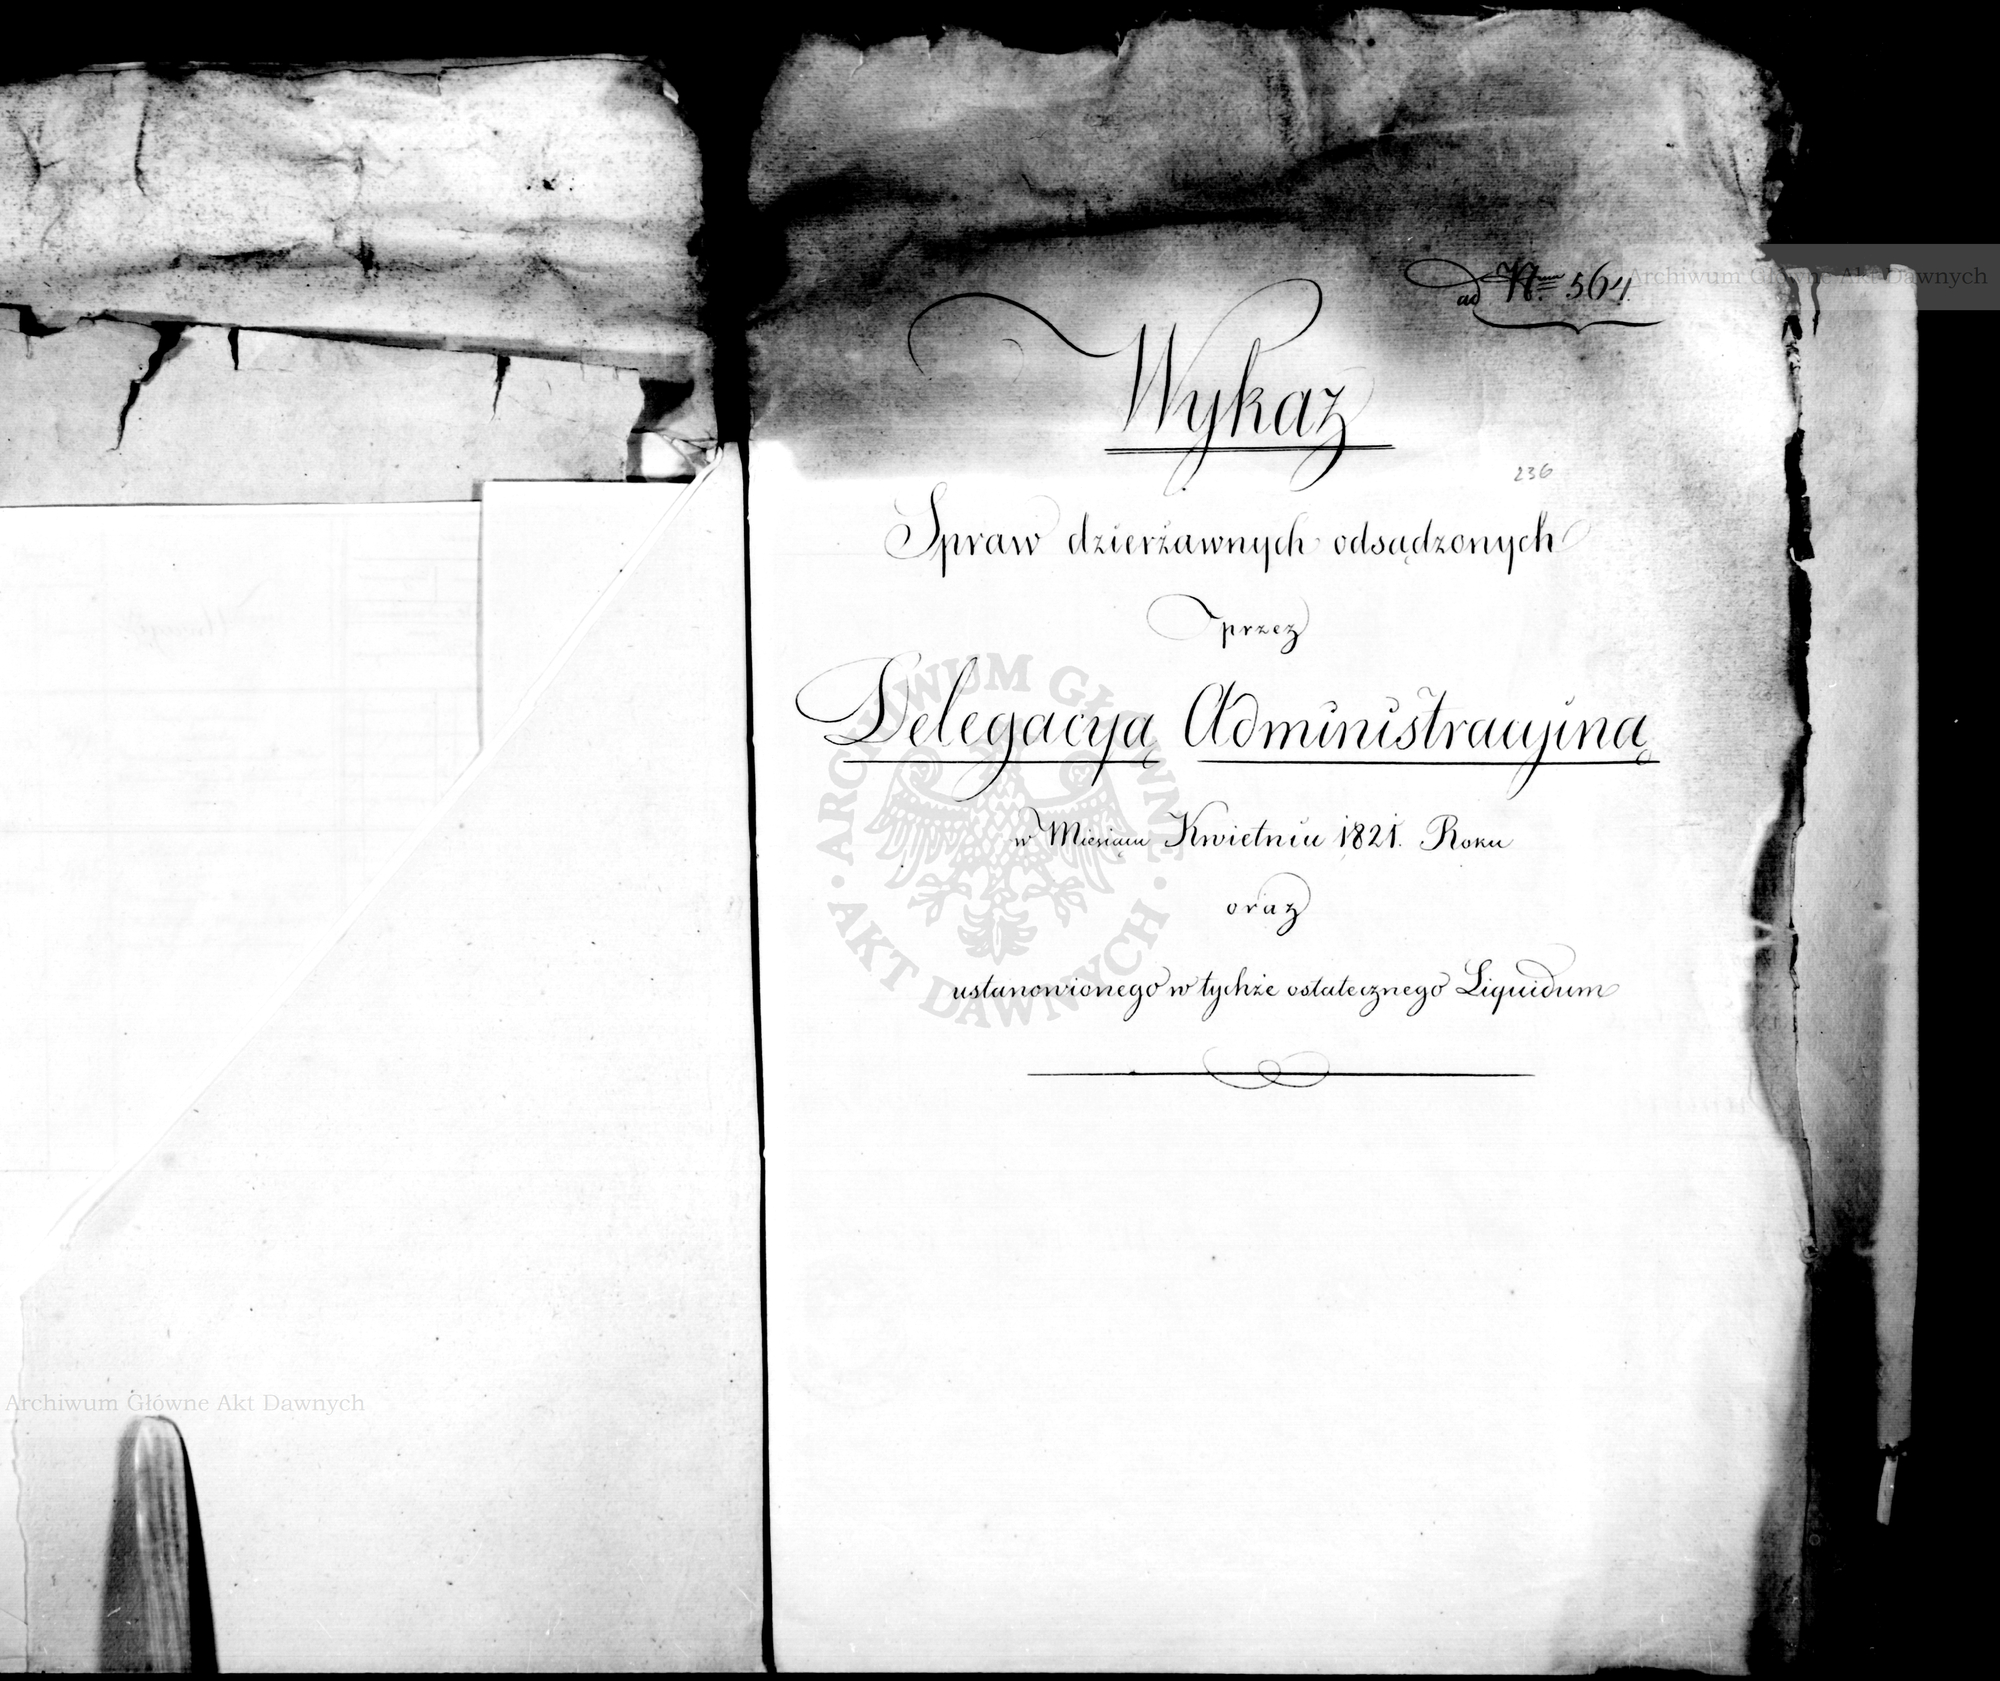 ad Nrum 564.
Wykaz
236
Spraw dzierżawnych odsądzonych
przez
Delegacyą Administracyiną
w Miesiącu Kwietniu 1821. Roku
oraz
ustanowionego w tychże ostatecznego Liquidum
Archiwum Główne Akt Dawnych
ARCHIWUM GŁÓWNE
AKT DAWNYCH
Archiwum Główne Akt Dawnych